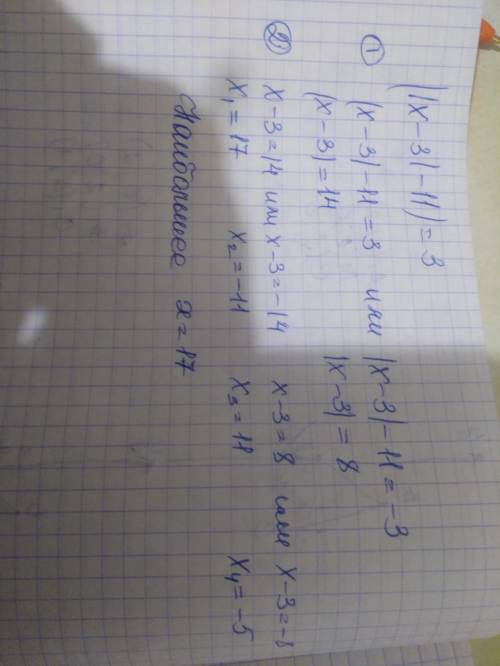 ||x-3|-11|=3
① |x-3|-11=3 или |x-3|-11=-3
|x-3|=14 |x-3|=8
② x-3=14 или x-3=-14 x-3=8 или x-3=-8
x₁=17 x₂=-11 x₃=11 x₄=-5
Наибольшее x=17